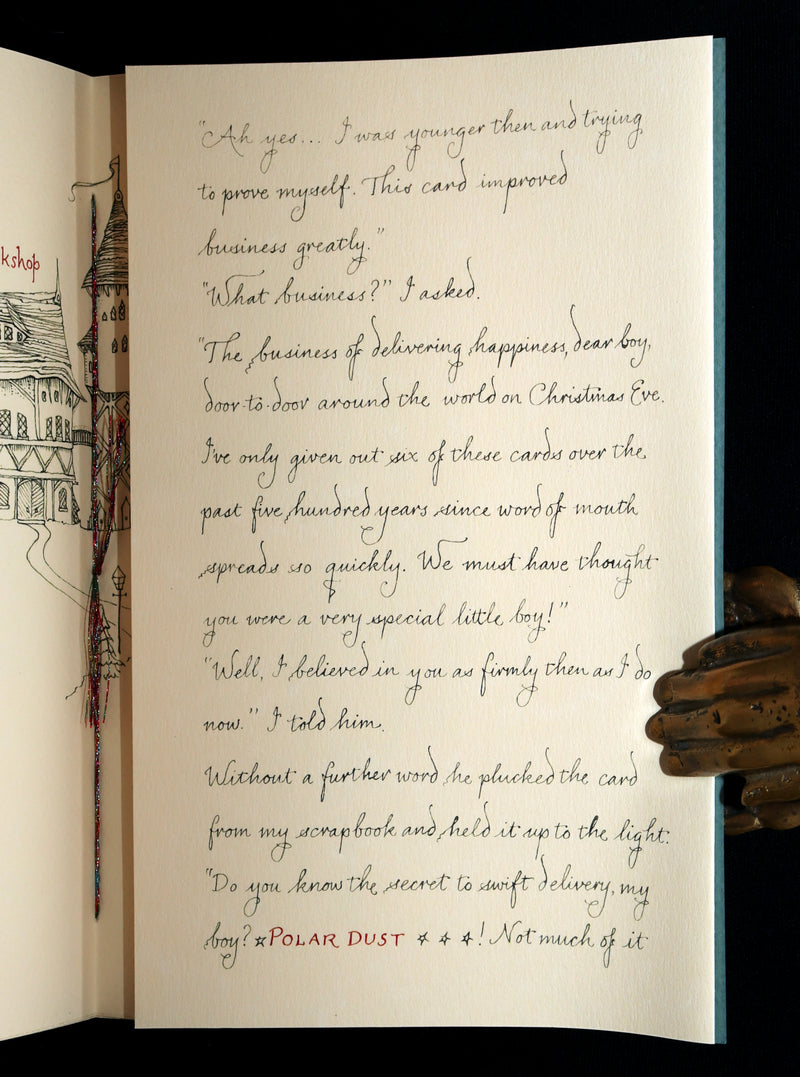 kshop
"Ah yes... I was younger then and trying
to prove myself. This card improved
business greatly."
"What business?" I asked.
"The business of delivering happiness, dear boy,
door-to-door around the world on Christmas Eve.
I've only given out six of these cards over the
past five hundred years since word of mouth
spreads so quickly. We must have thought
you were a very special little boy!"
"Well, I believed in you as firmly then as I do
now." I told him.
Without a further word he plucked the card
from my scrapbook and held it up to the light.
"Do you know the secret to swift delivery, my
boy? ☆POLAR DUST ☆ ☆ ☆! Not much of it